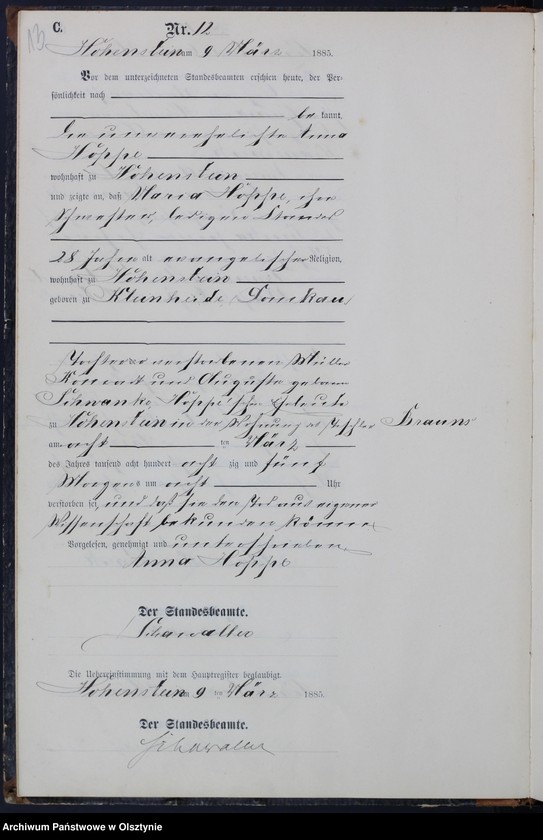 13
C.
Nr. 12
Hohenstein am 9 März 1885.
Vor dem unterzeichneten Standesbeamten erschien heute, der Per-
sönlichkeit nach
be kannt,
die unverehelichte Anna
Hoppe
wohnhaft zu Hohenstein
und zeigte an, daß Maria Hoppe, ihre
Schwester, ledigen Standes
28 Jahre alt evangelischer Religion,
wohnhaft zu Hohenstein
geboren zu
Tochter der verstorbenen Müller
und Auguste geborne
Hoppe'schen Eheleute
zu Hohenstein in der Wohnung des Tischler Brauns
am acht ten März
des Jahres tausend acht hundert acht zig und fünf
Morgens um acht Uhr
verstorben sei, und daß sie den Tod aus eigener
Wissenschaft bekunden könne
Vorgelesen, genehmigt und unterschrieben
Anna Hoppe
Der Standesbeamte.
Die Uebereinstimmung mit dem Hauptregister beglaubigt.
Hohenstein am 9 ten März 1885.
Der Standesbeamte.
Archiwum Państwowe w Olsztynie